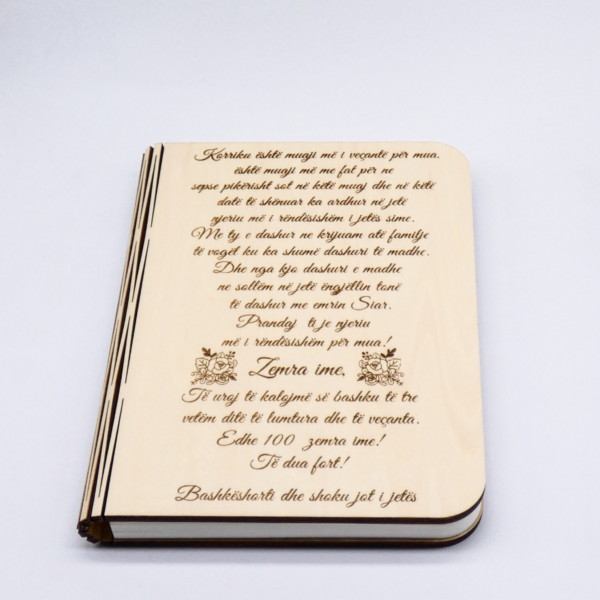 Korriku është muaji më i veçantë për mua.
është muaji më me fat për ne
sepse pikërisht sot në këtë muaj dhe në këtë
datë të shënuar ka ardhur në jetë
njeriu më i rëndësishëm i jetës sime.
Me ty e dashur ne krijuam atë familje
të vogël ku ka shumë dashuri të madhe.
Dhe nga kjo dashuri e madhe
ne sollëm në jetë ëngjëllin tonë
të dashur me emrin Siar.
Prandaj ti je njeriu
më i rëndësishëm për mua!
Zemra ime,
Të uroj të kalojmë së bashku të tre
vetëm ditë të lumtura dhe të veçanta.
Edhe 100 zemra ime!
Të dua fort!
Bashkëshorti dhe shoku jot i jetës